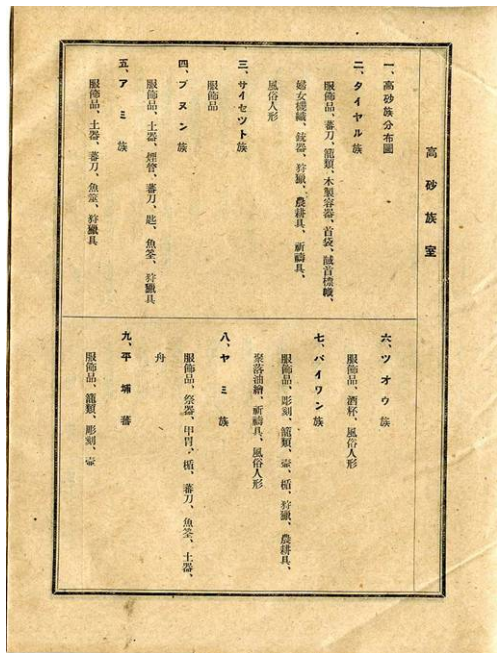 高砂族室
一、高砂族分布圖
二、タイヤル族
服飾品、蕃刀、籠類、木製容器、首袋、馘首標幟、
婦女機織、銃器、狩獵、農耕具、祈禱具、
風俗人形
三、サイセツト族
服飾品
四、ブヌン族
服飾品、土器、煙管、蕃刀、匙、魚筌、狩獵具
五、アミ族
服飾品、土器、蕃刀、魚筌、狩獵具
六、ツオウ族
服飾品、酒杯、風俗人形
七、パイワン族
服飾品、彫刻、籠類、壺、楯、狩獵、農耕具、
聚落油繪、祈禱具、風俗人形
八、ヤミ族
服飾品、祭器、甲冑、楯、蕃刀、魚筌、土器、
舟
九、平埔蕃
服飾品、籠類、彫刻、壺